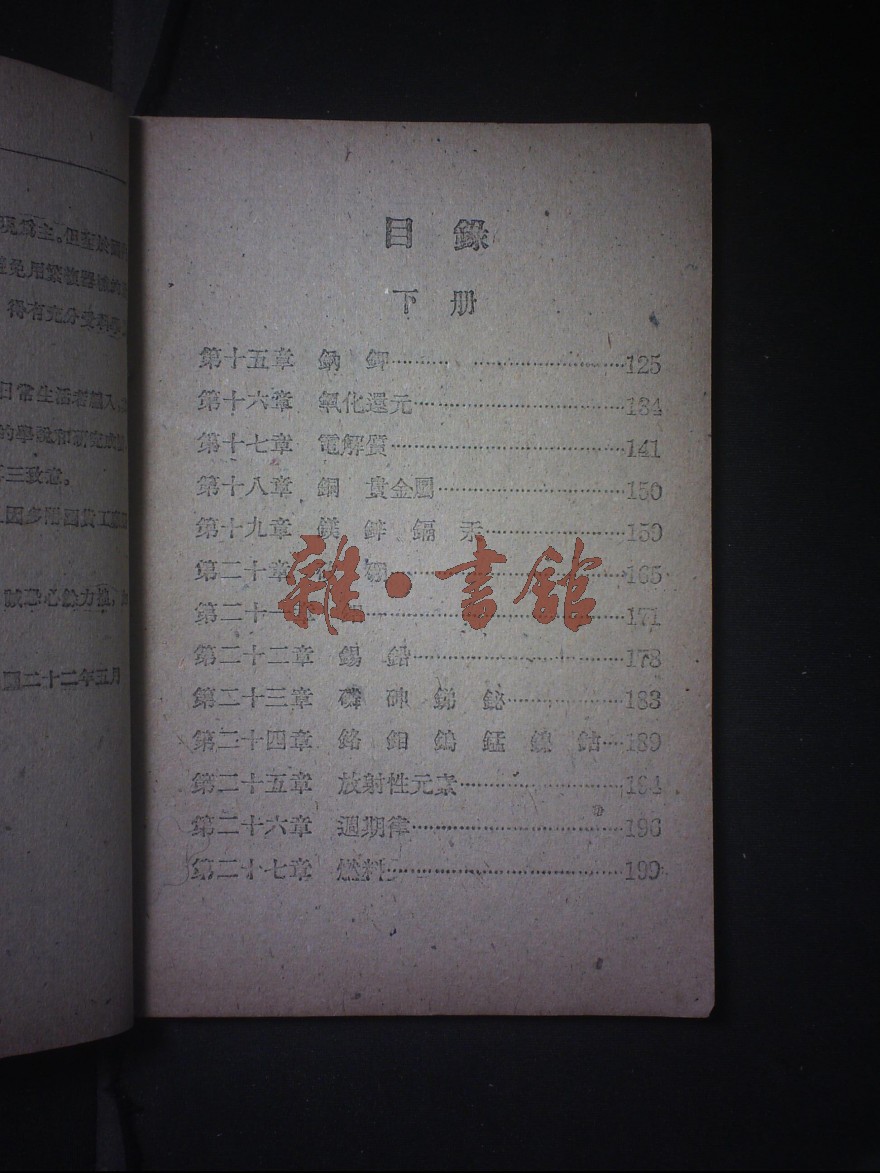 現為主。但至於
免用繁複器械的
得有充分受科學
日常生活者編入
的學說和研究成
三致意。
心餘力
國二十二年五月
目錄
下册
第十五章 鈉 鉀……………125
第十六章 氧化還元……………134
第十七章 電解質……………141
第十八章 銅 貴金屬……………150
第十九章 鎂 鋅 鎘 汞……………159
第二十章 165
第二十一章 ……………171
第二十二章 錫 鉛……………178
第二十三章 磷 砷 銻 鉍……………183
第二十四章 鉻 鉬 鎢 錳 鎳 鈷…189
第二十五章 放射性元素……………194
第二十六章 週期律……………196
第二十七章 燃料……………199
雜·書館